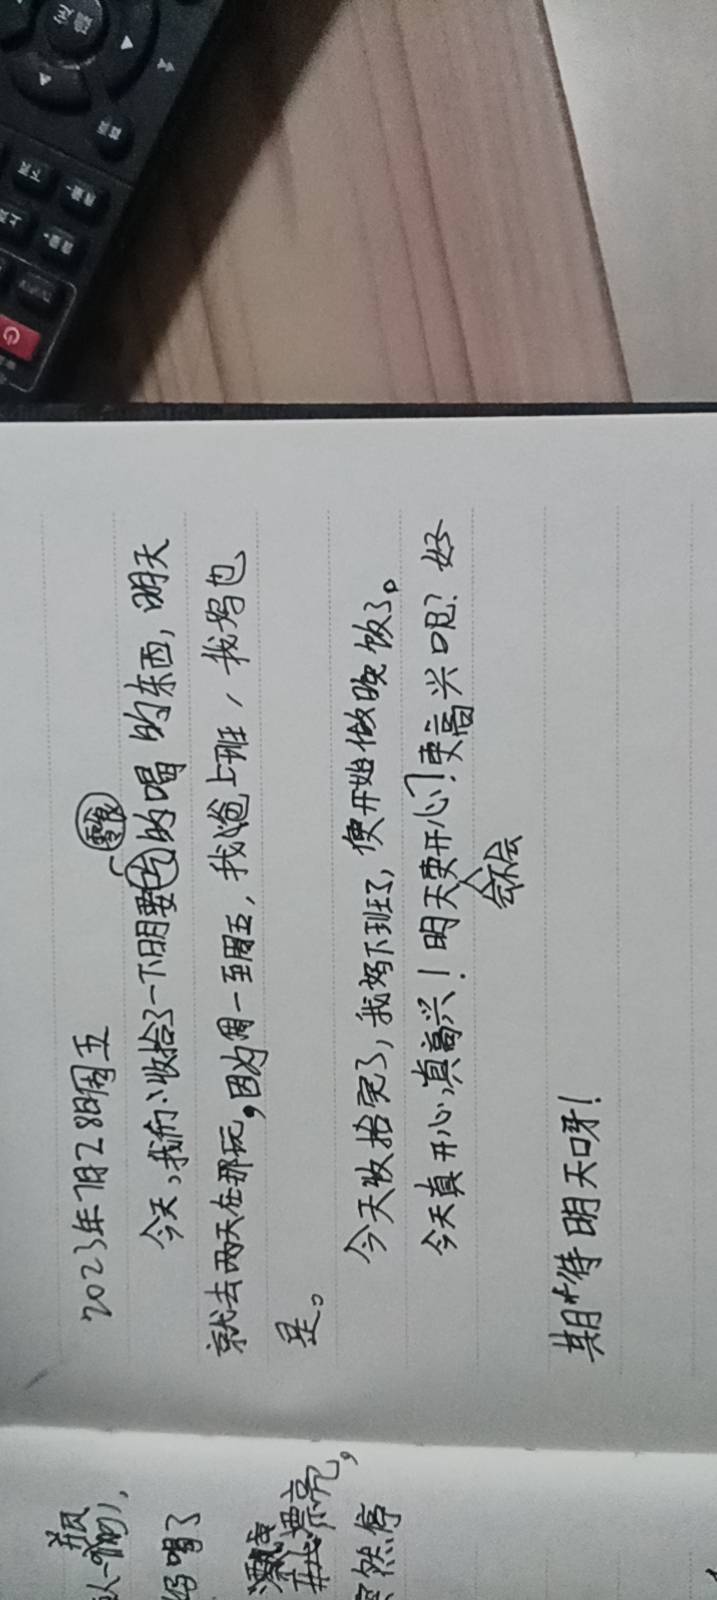 2023年7月28日周五
零食
今天,我们收拾了一下明要吃的喝的东西,明天
就去两天在那玩,因为周一至周五,我爸上班,我妈也
是。
今天收拾完了,我妈下班了,便开始做晚饭了。
今天真开心,真高兴!明天要开心!更高兴呢?好
会不会
期待明天呀!
喝了
漂亮,
然停